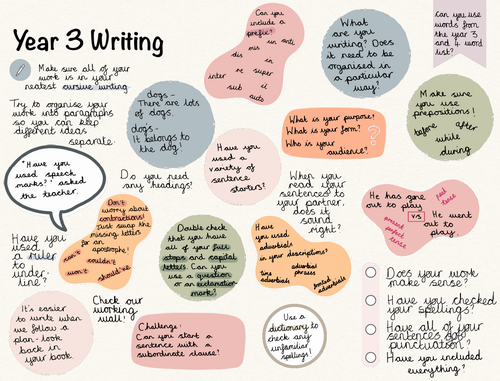 Year 3 Writing
Make sure all of your
work is in your
neatest cursive writing.
Try to organise your
work into paragraphs
so you can keep
different ideas
separate.
"Have you
used speech
marks?" asked
the teacher.
Have you
used a
ruler to
under-
line?
It's easier
to write when
we follow a
plan - look
back in
your book.
dogs -
There are lots
of dogs.
dog's -
It belongs to
the dog!
Do you need
any headings?
Don't
worry about
contractions!
Just swap the
missing letter
for an
apostrophe!
can't
couldn't
won't
should've
Check our
working
wall!
Can you
include a
prefix?
un
anti
dis
mis
in
inter
re
super
sub
il
auto
Have you
used a
variety of
sentence
starters?
Double check
that you have
all of your full
stops and capital
letters. Can you
use a question
or an exclamation
mark?
Challenge:
Can you start a
sentence with a
subordinate clause?
What
are you
writing? Does
it need to be
organised in
a particular
way?
What is your purpose?
What is your form?
Who is your
audience?
?
When you
read your
sentences to
your partner,
does it
sound
right?
Have you
used adverbials
in your descriptions?
time
adverbials
adverbial
phrases
fronted
adverbials
Use a
dictionary to
check any
unfamiliar
spellings!
Can you use
words from
the year 3
and 4 word
list?
Make sure
you use
prepositions!
before
after
while
during
He has gone
out to play
vs
He went
out to
play.
past
tense
present
perfect
tense
Does your work
make sense?
Have you checked
your spellings?
Have all of your
sentences got
punctuation?
Have you included
everything?